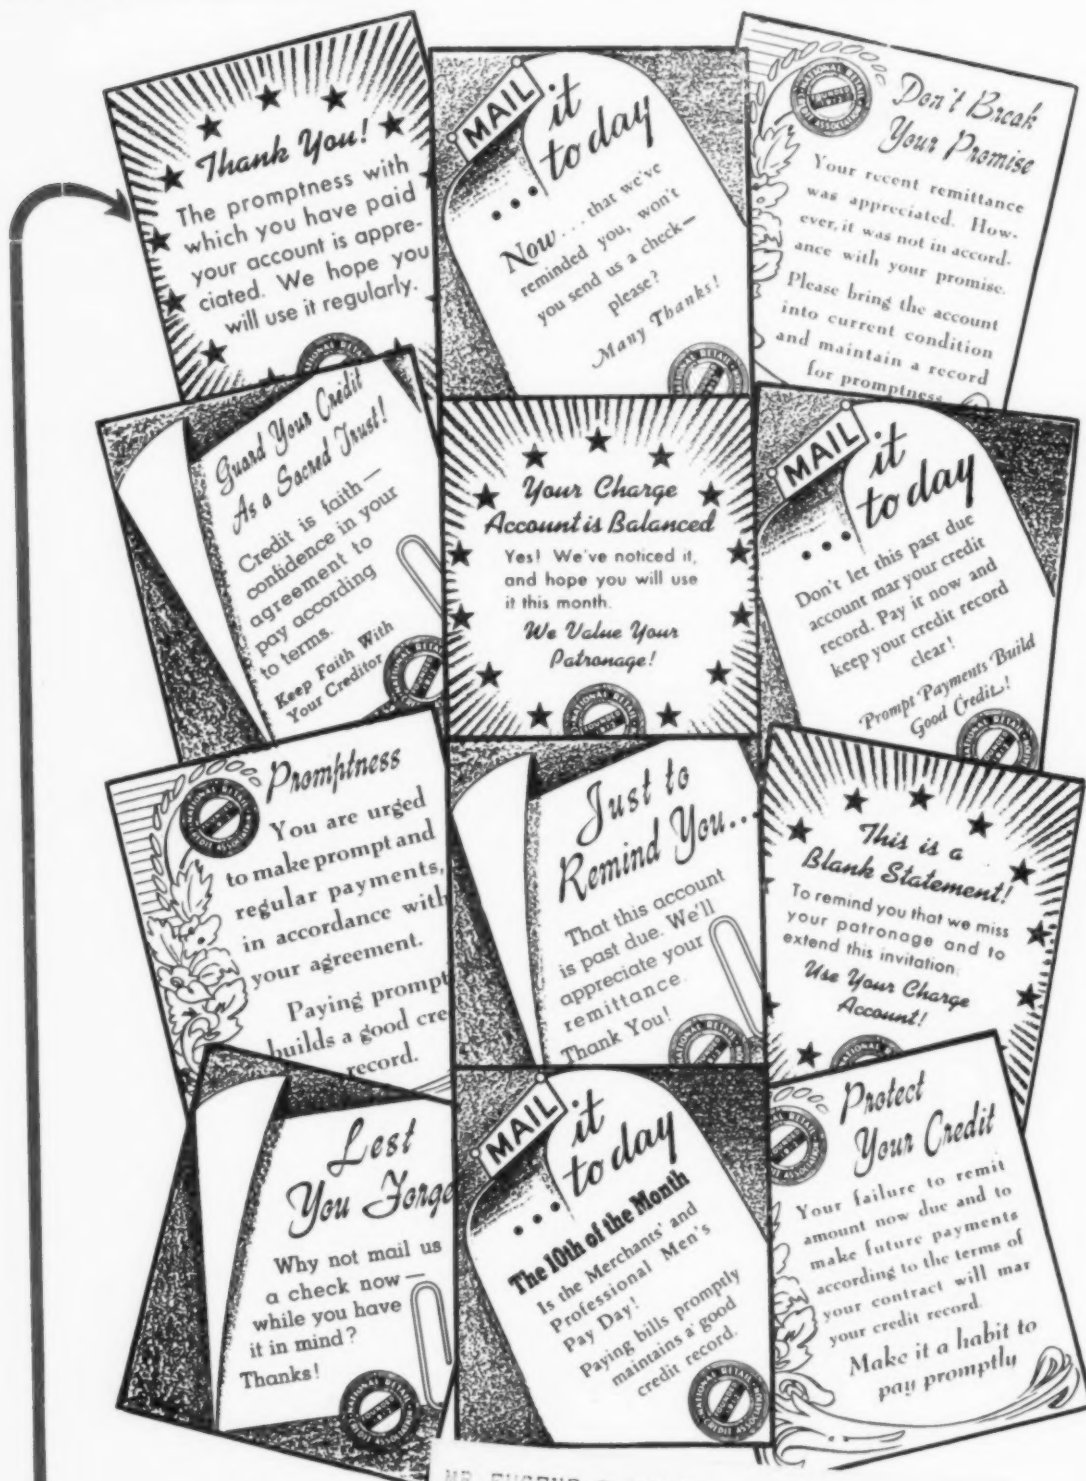 Thank You!
The promptness with
which you have paid
your account is appre-
ciated. We hope you
will use it regularly.
NATIONAL RETAIL
MAIL
it
today
Now... that we've
reminded you, won't
you send us a check—
please?
Many Thanks!
NATIONAL RETAIL
NATIONAL RETAIL
CREDIT ASSOCIATION
Don't Break
Your Promise
Your recent remittance
was appreciated. How-
ever, it was not in accord-
ance with your promise.
Please bring the account
into current condition
and maintain a record
for promptness
Guard Your Credit
As a Sacred Trust!
Credit is faith—
confidence in your
agreement to
pay according
to terms.
Keep Faith With
Your Creditor
NATIONAL RETAIL
Your Charge
Account is Balanced
Yes! We've noticed it,
and hope you will use
it this month.
We Value Your
Patronage!
NATIONAL RETAIL
MAIL
it
today
Don't let this past due
account mar your credit
record. Pay it now and
keep your credit record
clear!
Prompt Payments Build
Good Credit!
NATIONAL RETAIL
NATIONAL RETAIL
CREDIT ASSOCIATION
Promptness
You are urged
to make prompt and
regular payments,
in accordance with
your agreement.
Paying prompt
builds a good cre
record.
Just to
Remind You...
That this account
is past due. We'll
appreciate your
remittance.
Thank You!
NATIONAL RETAIL
This is a
Blank Statement!
To remind you that we miss
your patronage and to
extend this invitation:
Use Your Charge
Account!
NATIONAL RETAIL
Lest
You Forge
Why not mail us
a check now—
while you have
it in mind?
Thanks!
NATIONAL RETAIL
CREDIT ASS
MAIL
it
today
The 10th of the Month
Is the Merchants' and
Professional Men's
Pay Day!
Paying bills promptly
maintains a good
credit record.
NATIONAL RETAIL
CREDIT ASS
Protect
Your Credit
Your failure to remit
amount now due and to
make future payments
according to the terms of
your contract will mar
your credit record.
Make it a habit to
pay promptly